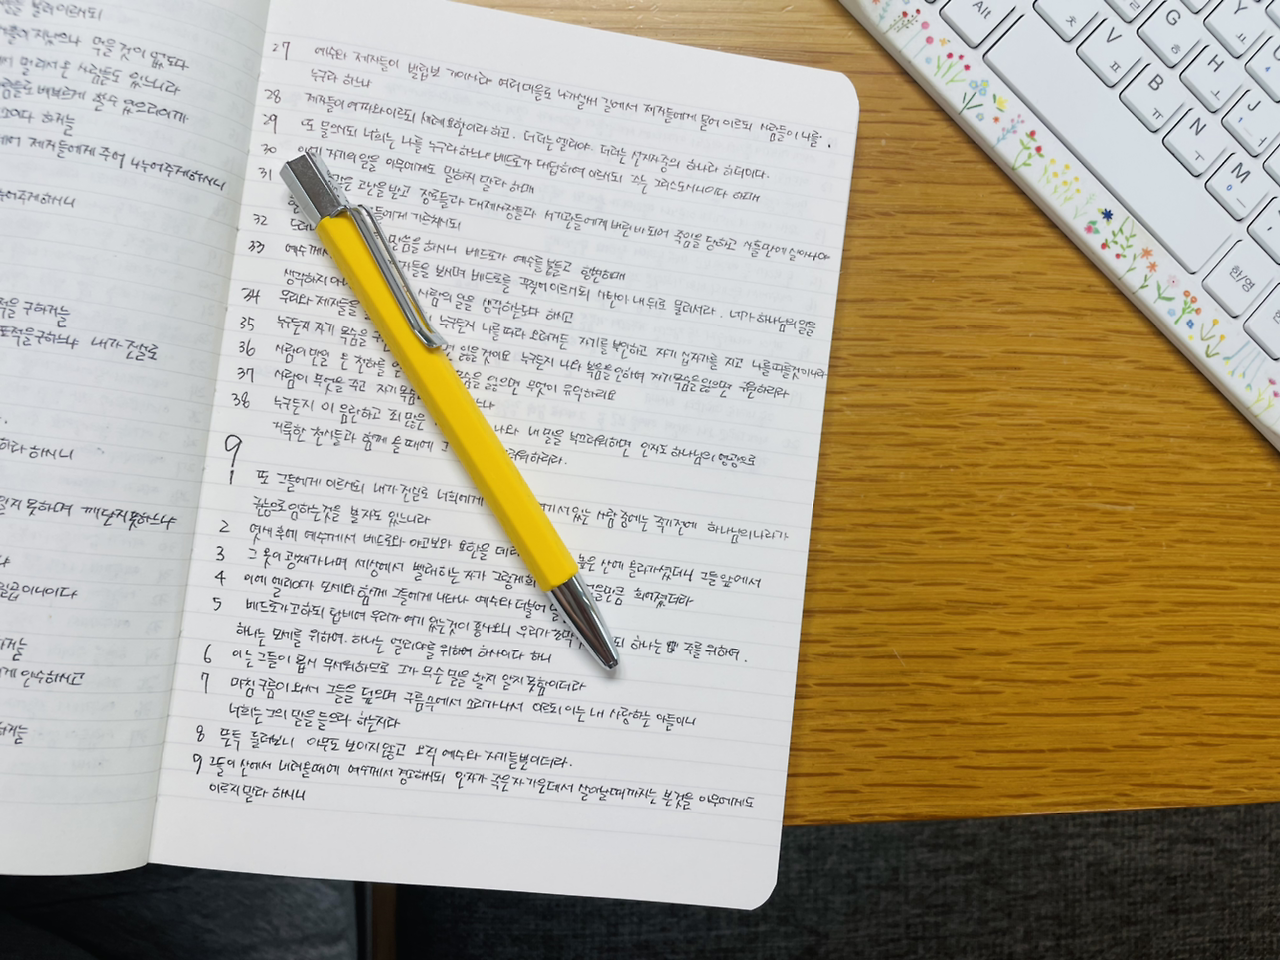 을 불러 이르시되
먹을 것이 없도다
멀리서 온 사람들도 있느니라
배부르게 할 수 있으리이까
하거늘
제자들에게 주어 나누어주게 하시니
나누어주게 하시니
구하거늘
표적을 구하느냐 내가 진실로
하라 하시니
알지 못하며 깨닫지 못하느냐
27 예수와 제자들이 빌립보 가이사랴 여러 마을로 나가실새 길에서 제자들에게 물어 이르되 사람들이 나를
누구라 하느냐
28 제자들이 여짜와 이르되 세례 요한이라 하고. 더러는 엘리야. 더러는 선지자 중의 하나라 하더이다.
29 또 물으시되 너희는 나를 누구라 하느냐 베드로가 대답하여 이르되 주는 그리스도시니이다 하매
30 자기의 일을 아무에게도 말하지 말라 하매
31 고난을 받고 장로들과 대제사장들과 서기관들에게 버린 바 되어 죽임을 당하고 사흘만에 살아나야
들에게 가르치시되
32 말씀을 하시니 베드로가 예수를 붙들고 항변하매
33 예수께서 자들을 보시며 베드로를 꾸짖어 이르시되 사탄아 내 뒤로 물러서라. 네가 하나님의 일을
생각하지 사람의 일을 생각하는도다 하시고
34 무리와 제자들을 누구든지 나를 따라 오려거든 자기를 부인하고 자기 십자가를 지고 나를 따를 것이니라
35 누구든지 자기 목숨을 잃을 것이요 누구든지 나와 복음을 인하여 자기 목숨을 잃으면 구원하리라
36 사람이 만일 온 천하를 목숨을 잃으면 무엇이 유익하리요
37 사람이 무엇을 주고 자기 목숨
38 누구든지 이 음란하고 죄 많은 나와 내 말을 부끄러워하면 인자도 하나님의 영광으로
거룩한 천사들과 함께 올 때에 그 러워하리라.
9
1 또 그들에게 이르시되 내가 진실로 너희에게 여기 서 있는 사람 중에는 죽기 전에 하나님의 나라가
권능으로 임하는 것을 볼 자도 있느니라
2 엿새 후에 예수께서 베드로와 야고보와 요한을 데리 높은 산에 올라가셨더니 그들 앞에서
3 그 옷이 광채가 나며 세상에서 빨래하는 자가 그렇게 희 없을 만큼 희어졌더라
4 이에 엘리야가 모세와 함께 그들에게 나타나 예수와 더불어
5 베드로가 고하되 랍비여 우리가 여기 있는 것이 좋사오니 우리가 초막 되 하나는 주를 위하여.
하나는 모세를 위하여. 하나는 엘리야를 위하여 하사이다 하니
6 이는 그들이 몹시 무서워하므로 그가 무슨 말을 할지 알지 못함이더라
7 마침 구름이 와서 그들을 덮으며 구름 속에서 소리가 나서 이르되 이는 내 사랑하는 아들이니
너희는 그의 말을 들으라 하는지라
8 문득 둘러보니 아무도 보이지 않고 오직 예수와 자기들뿐이더라.
9 그들이 산에서 내려올 때에 예수께서 경고하시되 인자가 죽은 자 가운데서 살아날 때까지는 본 것을 아무에게도
이르지 말라 하시니
Alt
ㅊ
V ㅍ
G ㅎ
Y ㅛ
B ㅠ
H ㅗ
N ㅜ
J ㅓ
M ㅡ
한/영